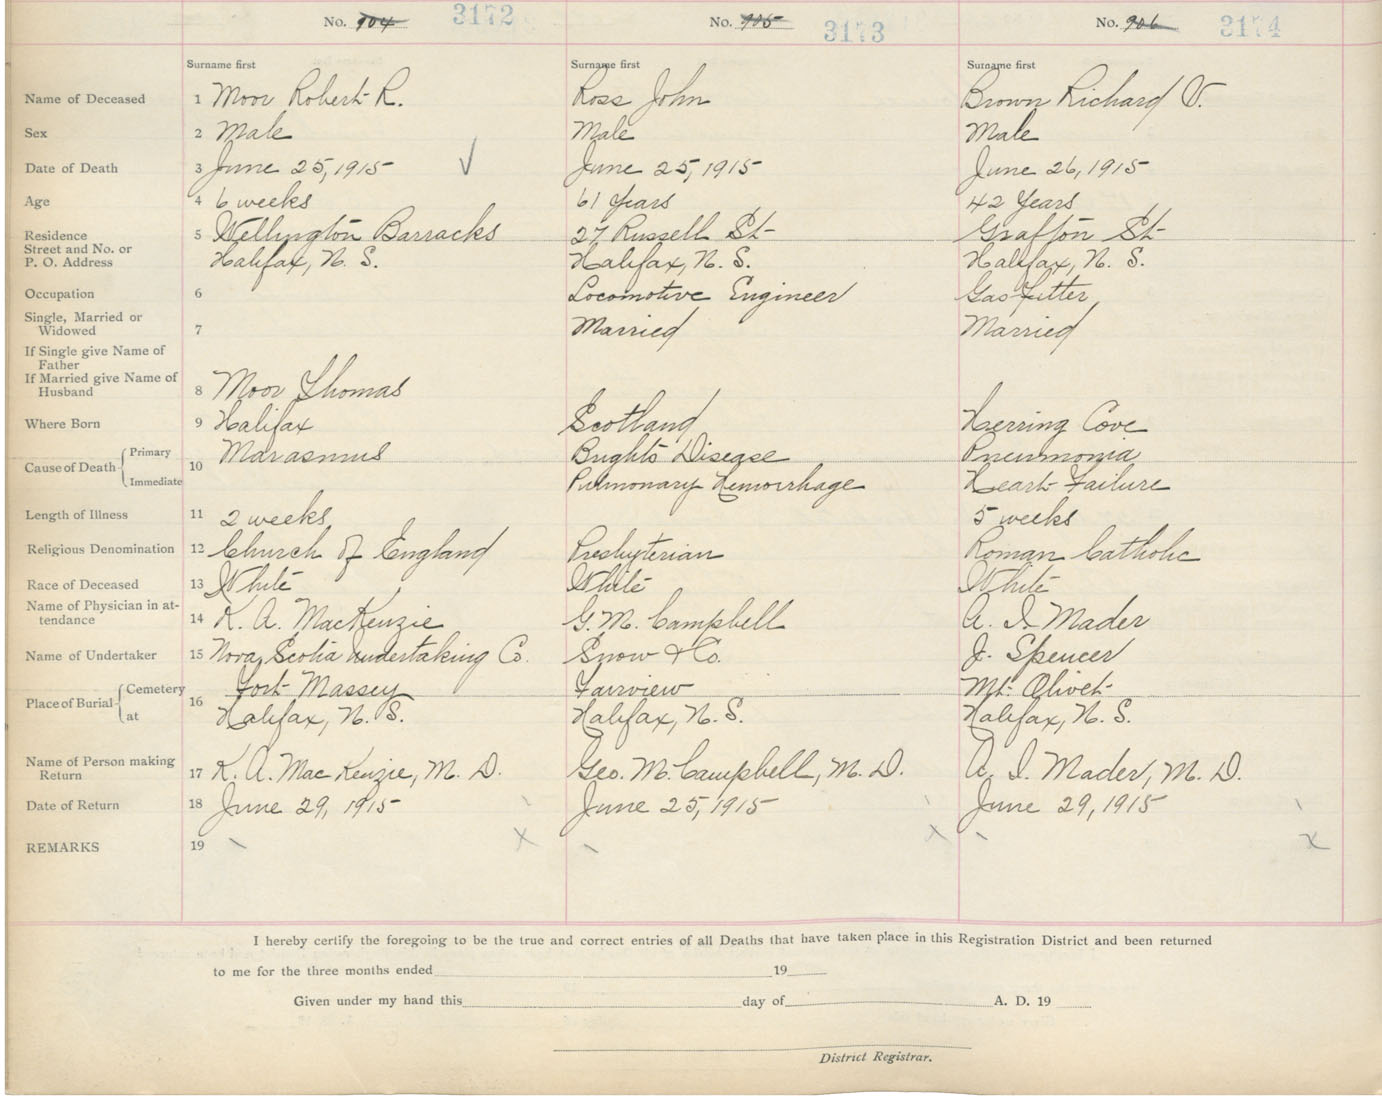 No. 904 3172 No. 905 3173 No. 906 3174
Surname first Surname first Surname first
Name of Deceased 1 Moor Robert R. Ross John Brown Richard V.
Sex 2 Male Male Male
Date of Death 3 June 25, 1915 June 25, 1915 June 26, 1915
Age 4 6 weeks 61 Years 42 Years
Residence 5 Wellington Barracks 27 Russell St Grafton St
Street and No. or
P. O. Address Halifax, N. S. Halifax, N. S. Halifax, N. S.
Occupation 6 Locomotive Engineer Gas Fitter
Single, Married or
Widowed 7 Married Married
If Single give Name of
Father
If Married give Name of
Husband 8 Moor Thomas
Where Born 9 Halifax Scotland Herring Cove
Cause of Death Primary 10 Marasmus Brights Disease Pneumonia
Immediate Pulmonary Hemorrhage Heart Failure
Length of Illness 11 2 weeks 5 weeks
Religious Denomination 12 Church of England Presbyterian Roman Catholic
Race of Deceased 13 White White White
Name of Physician in at-
tendance 14 K. A. MacKenzie G. M. Campbell A. I Mader
Name of Undertaker 15 Nova Scotia Undertaking Co. Snow & Co. J. Spencer
Place of Burial Cemetery 16 Fort Massey Fairview Mt. Olivet
at Halifax, N. S. Halifax, N. S. Halifax, N. S.
Name of Person making
Return 17 K. A. MacKenzie, M. D. Geo. M. Campbell, M. D. A. I. Mader, M. D.
Date of Return 18 June 29, 1915 June 25, 1915 June 29, 1915
REMARKS 19
I hereby certify the foregoing to be the true and correct entries of all Deaths that have taken place in this Registration District and been returned
to me for the three months ended 19
Given under my hand this day of A. D. 19
District Registrar.